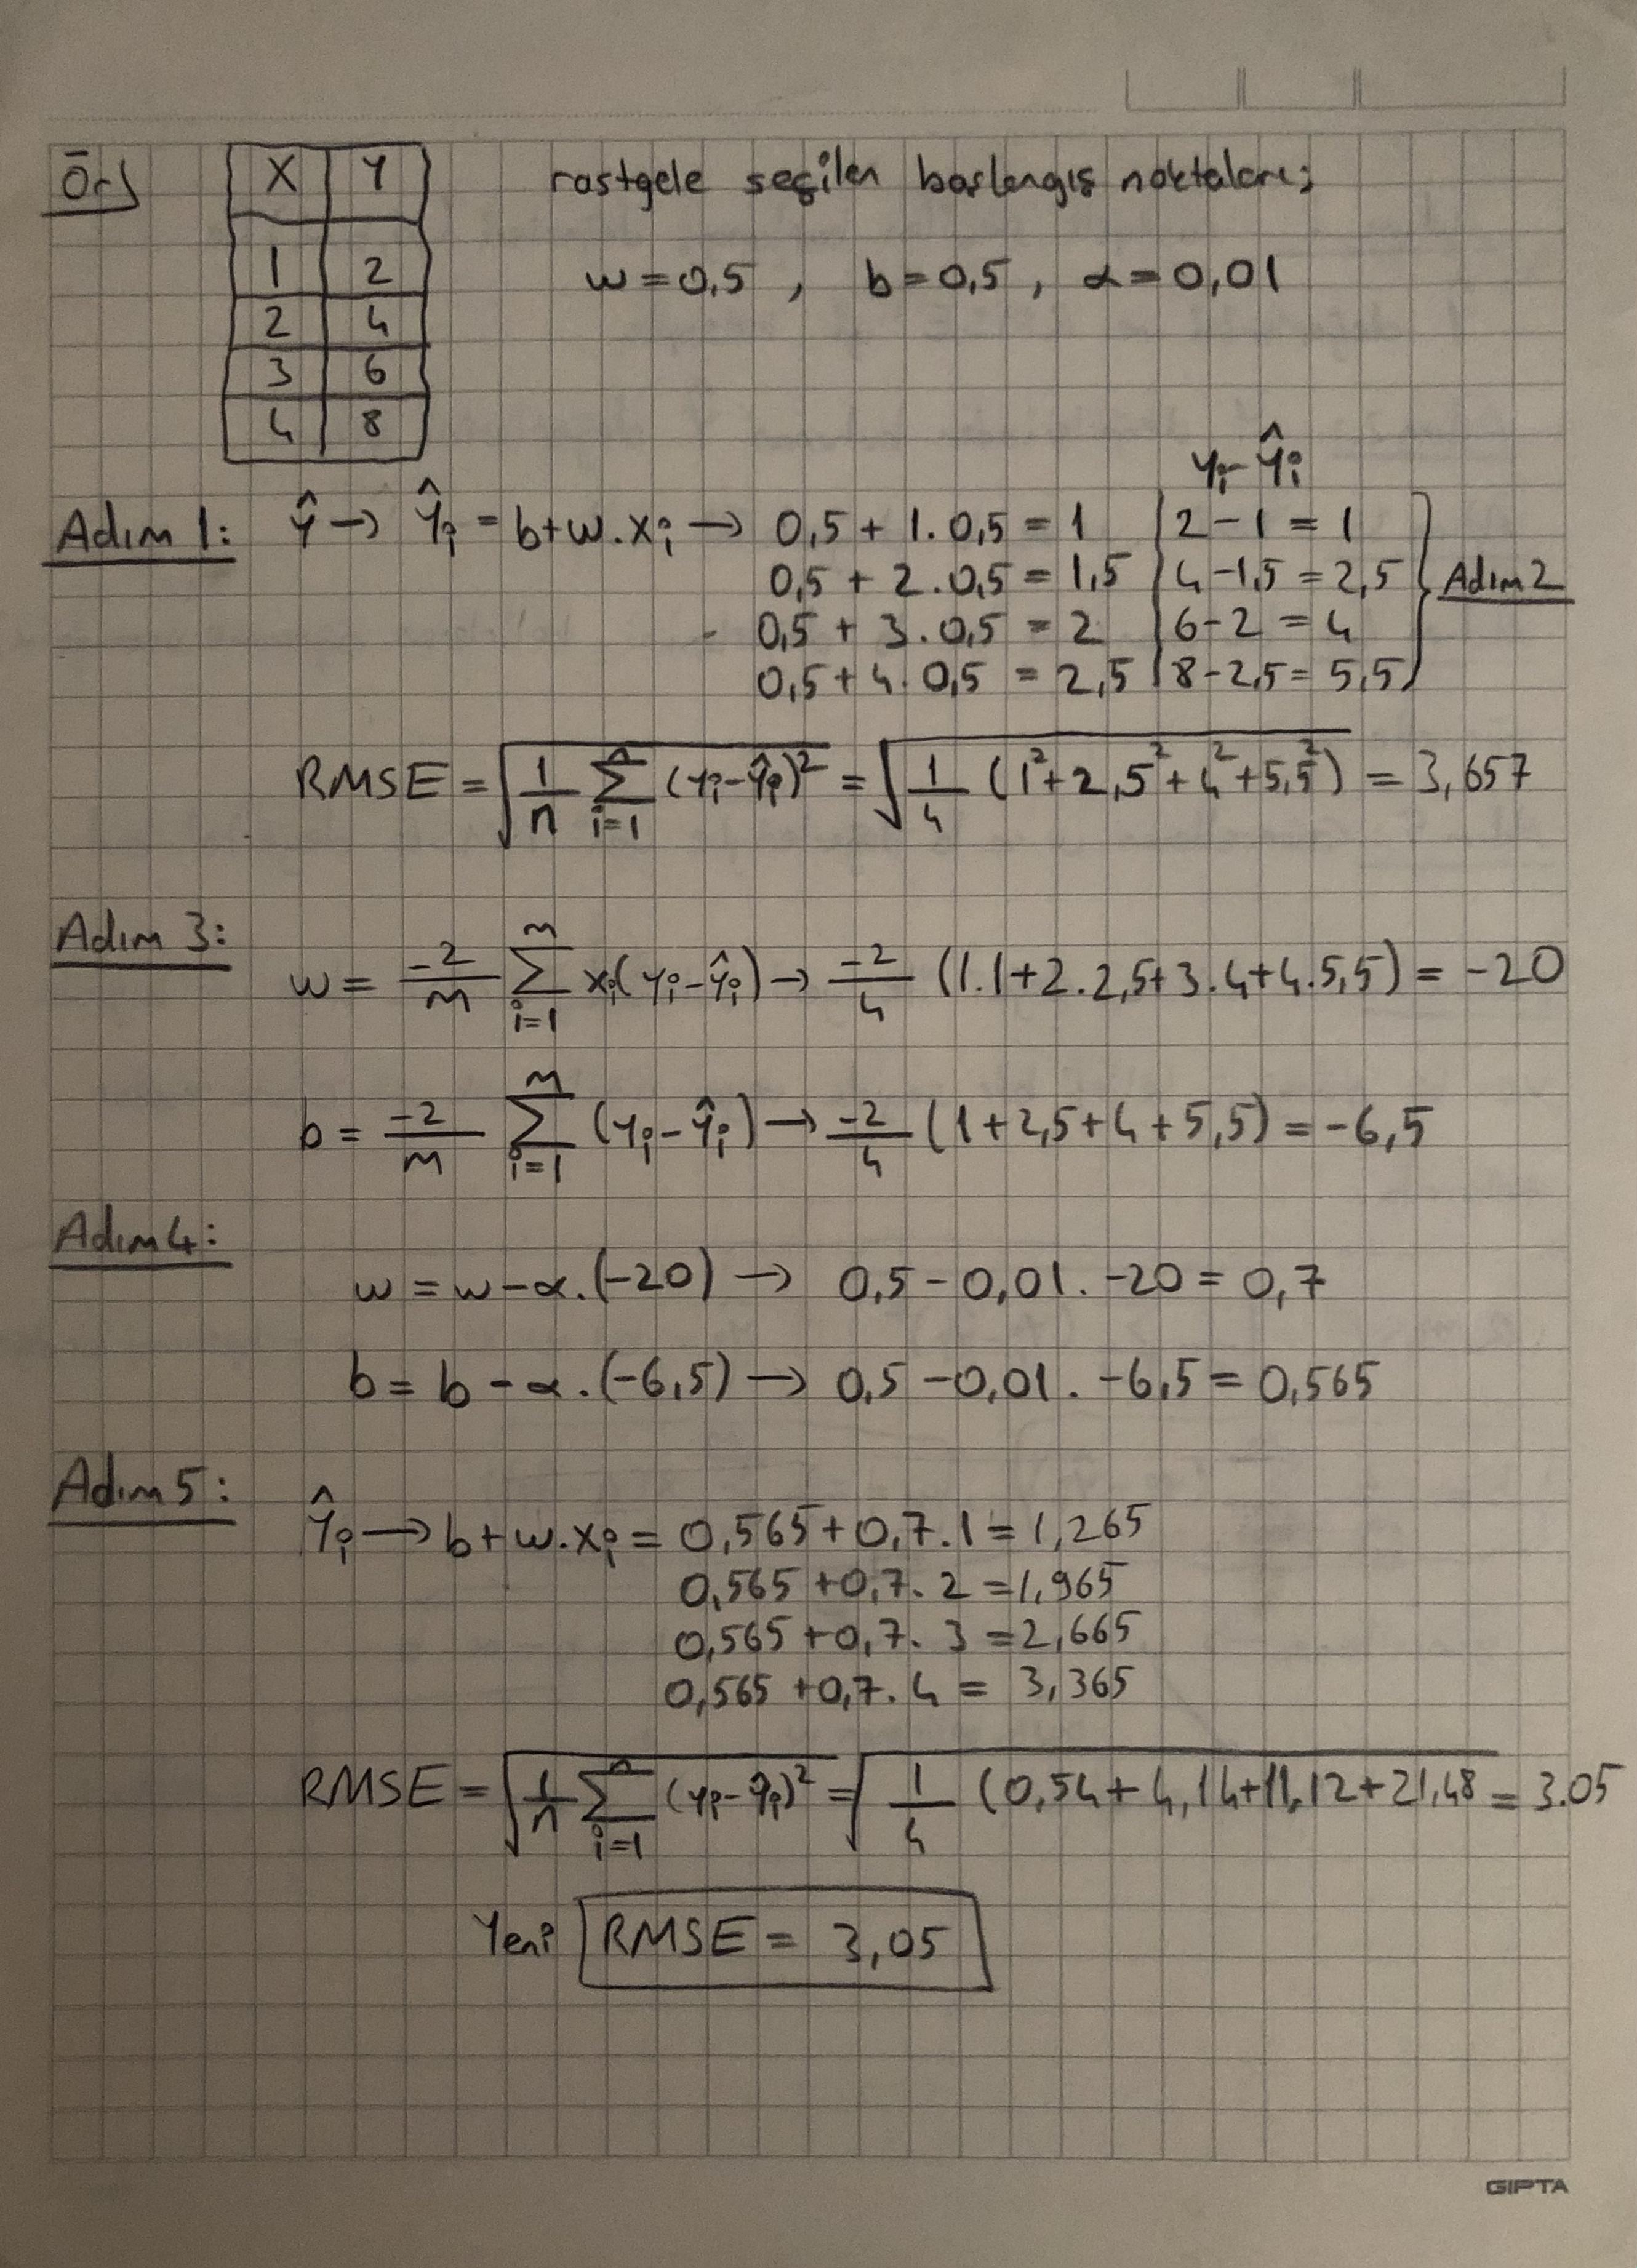 Örj
X Y
1 2
2 4
3 6
4 8
rastgele seçilen başlangış noktaları;
w=0,5 , b=0,5 , α=0,01
yᵢ-ŷᵢ
Adım 1: ŷ → ŷᵢ = b+w.xᵢ → 0,5 + 1. 0,5 = 1 | 2 - 1 = 1
0,5 + 2.0,5 = 1,5 | 4 -1,5 = 2,5 Adım 2
0,5 + 3.0,5 = 2 | 6-2 = 4
0,5+4.0,5 = 2,5 | 8-2,5= 5,5
RMSE = √(1/n Σᵢ₌₁ⁿ (yᵢ-ŷᵢ)²) = √(1/4 (1²+2,5²+4²+5,5²)) = 3,657
Adım 3:
w = -2/m Σᵢ₌₁ᵐ xᵢ(yᵢ-ŷᵢ) → -2/4 (1.1+2.2,5+3.4+4.5,5) = -20
b = -2/m Σᵢ₌₁ᵐ (yᵢ-ŷᵢ) → -2/4 (1+2,5+4+5,5) = -6,5
Adım 4:
w = w-α.(-20) → 0,5-0,01. -20 = 0,7
b = b - α.(-6,5) → 0,5 -0,01. -6,5 = 0,565
Adım 5:
ŷᵢ → b+w.xᵢ = 0,565+0,7.1 = 1,265
0,565 +0,7. 2 = 1,965
0,565 +0,7. 3 = 2,665
0,565 +0,7. 4 = 3,365
RMSE = √(1/n Σᵢ₌₁ⁿ (yᵢ-ŷᵢ)²) = √(1/4 (0,54+4,14+11,12+21,48 = 3.05
Yeni RMSE = 3,05
GIPTA